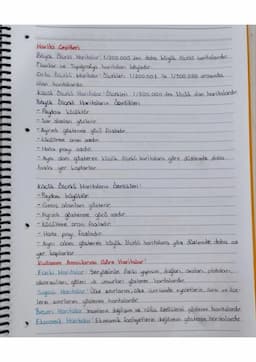 Harita Çeşitleri
Büyük Ölçekli Haritalar: 1/200.000 den daha büyük ölçekli haritalardır.
Planlar ve Topografya haritaları böyledir.
Orta Ölçekli Haritalar: Ölçekleri 1/200.000 ile 1/500.000 arasında
olan haritalardır.
Küçük Ölçekli Haritalar: Ölçekleri 1/500.000 den küçük olan haritalardır.
Büyük Ölçekli Haritaların Özellikleri
- Paydası küçüktür
- Dar alanları gösterir.
- Ayrıntı gösterme gücü fazladır.
- Küçültme oranı azdır.
- Hata payı azdır.
- Aynı alanı gösteren küçük ölçekli haritalara göre düzlemde daha
fazla yer kaplarlar.
Küçük Ölçekli Haritaların Özellikleri
- Paydası büyüktür
- Geniş alanları gösterir.
- Ayrıntı gösterme gücü azdır.
- Küçültme oranı fazladır.
- Hata payı fazladır.
- Aynı alanı gösteren büyük ölçekli haritalara göre düzlemde daha az
yer kaplarlar.
Kullanım Amaçlarına Göre Haritalar
Fiziki Haritalar: Yeryüzünün fiziki yapısını, dağları, ovaları, platoları,
akarsuları, gölleri vb. unsurları gösteren haritalardır.
Siyasi Haritalar: Ülke sınırlarını, ülke içerisinde eyaletlerin, il ve ilçe-
lerin sınırlarını gösteren haritalardır.
Beşeri Haritalar: İnsanların dağılışını ve nüfus özelliklerini gösteren haritalardır.
Ekonomik Haritalar: Ekonomik faaliyetlerin dağılışını gösteren haritalardır.